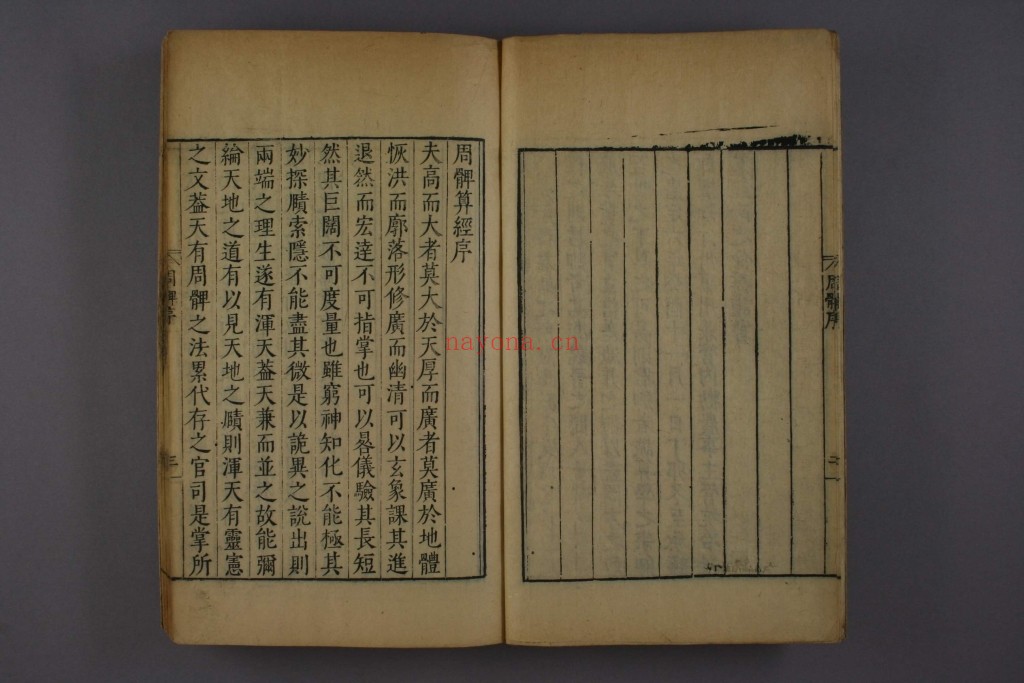 周髀序
二
周髀算經序
夫高而大者莫大於天厚而廣者莫廣於地體
恢洪而廓落形修廣而幽清可以玄象課其進
退然而宏逹不可指掌也可以晷儀驗其長短
然其巨闊不可度量也雖窮神知化不能極其
妙探賾索隱不能盡其微是以詭異之說出則
兩端之理生遂有渾天葢天兼而並之故能彌
綸天地之道有以見天地之賾則渾天有靈憲
之文葢天有周髀之法累代存之官司是掌所
周髀序
nayona.cn